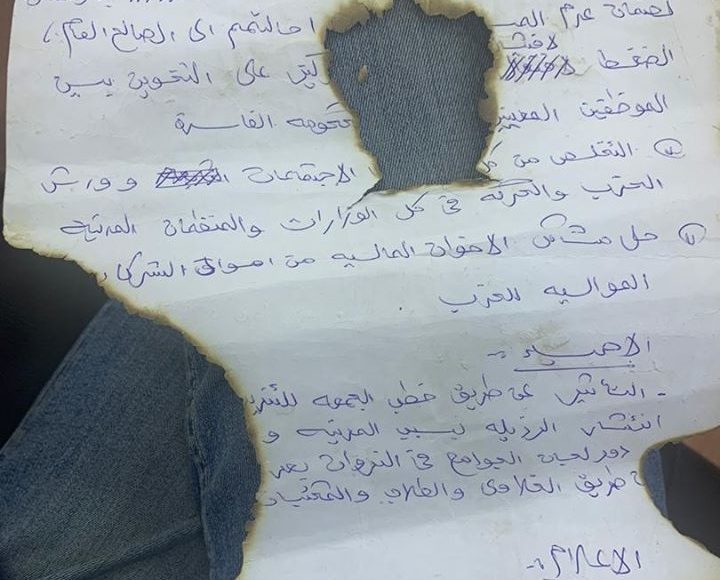 لضمان عدم المس
احالتهم الى الصالح العام.)
الضغط لافشا كيز على التخوين بين
الموظفين المعيين حكومه الفاسدة
التخلص من الاجتماعات وورش
الحزب والحركه في كل القرارات والمنظمات المدنيه
حل مشاكل الاخوان الماليه من اموال الشركات
المواليه للحزب
الاحياء :-
- التأثير عن طريق خطب الجمعه للتنديد
انتشار الرذيله بسبب المدنيه و
دور لجان الجوامع في الندوات بعد
طريق الخلاوى والطلاب والمكتبات
الاعلام :-